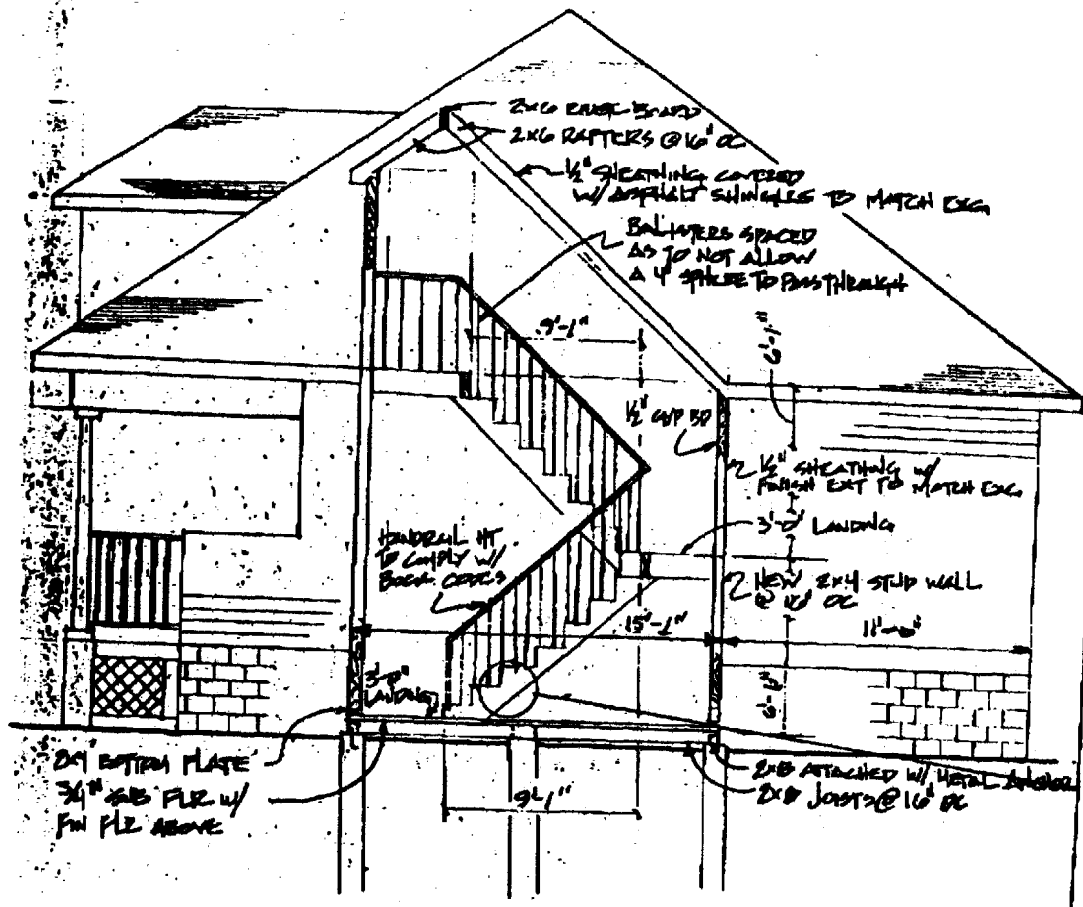 2x6 RIDGE BOARD
2x6 RAFTERS @ 16" OC
1/2" SHEATHING COVERED
W/ ASPHALT SHINGLES TO MATCH EXG
BALISTERS SPACED
AS TO NOT ALLOW
A 4" SPHERE TO PASS THROUGH
9'-1"
6'-1"
1/2" GYP BD
1/2" SHEATHING W/
FINISH EXT TO MATCH EXG
3'-0" LANDING
HANDRAIL HT
TO COMPLY W/
CODES
NEW 2x4 STUD WALL
@ 16" OC
15'-1"
11'-6"
3'-0"
LANDING
2x4 BOTTOM PLATE
3/4" SUB FLR W/
FIN FLR ABOVE
9'-1"
2x8 ATTACHED W/ METAL ANCHOR
2x8 JOISTS @ 16" OC